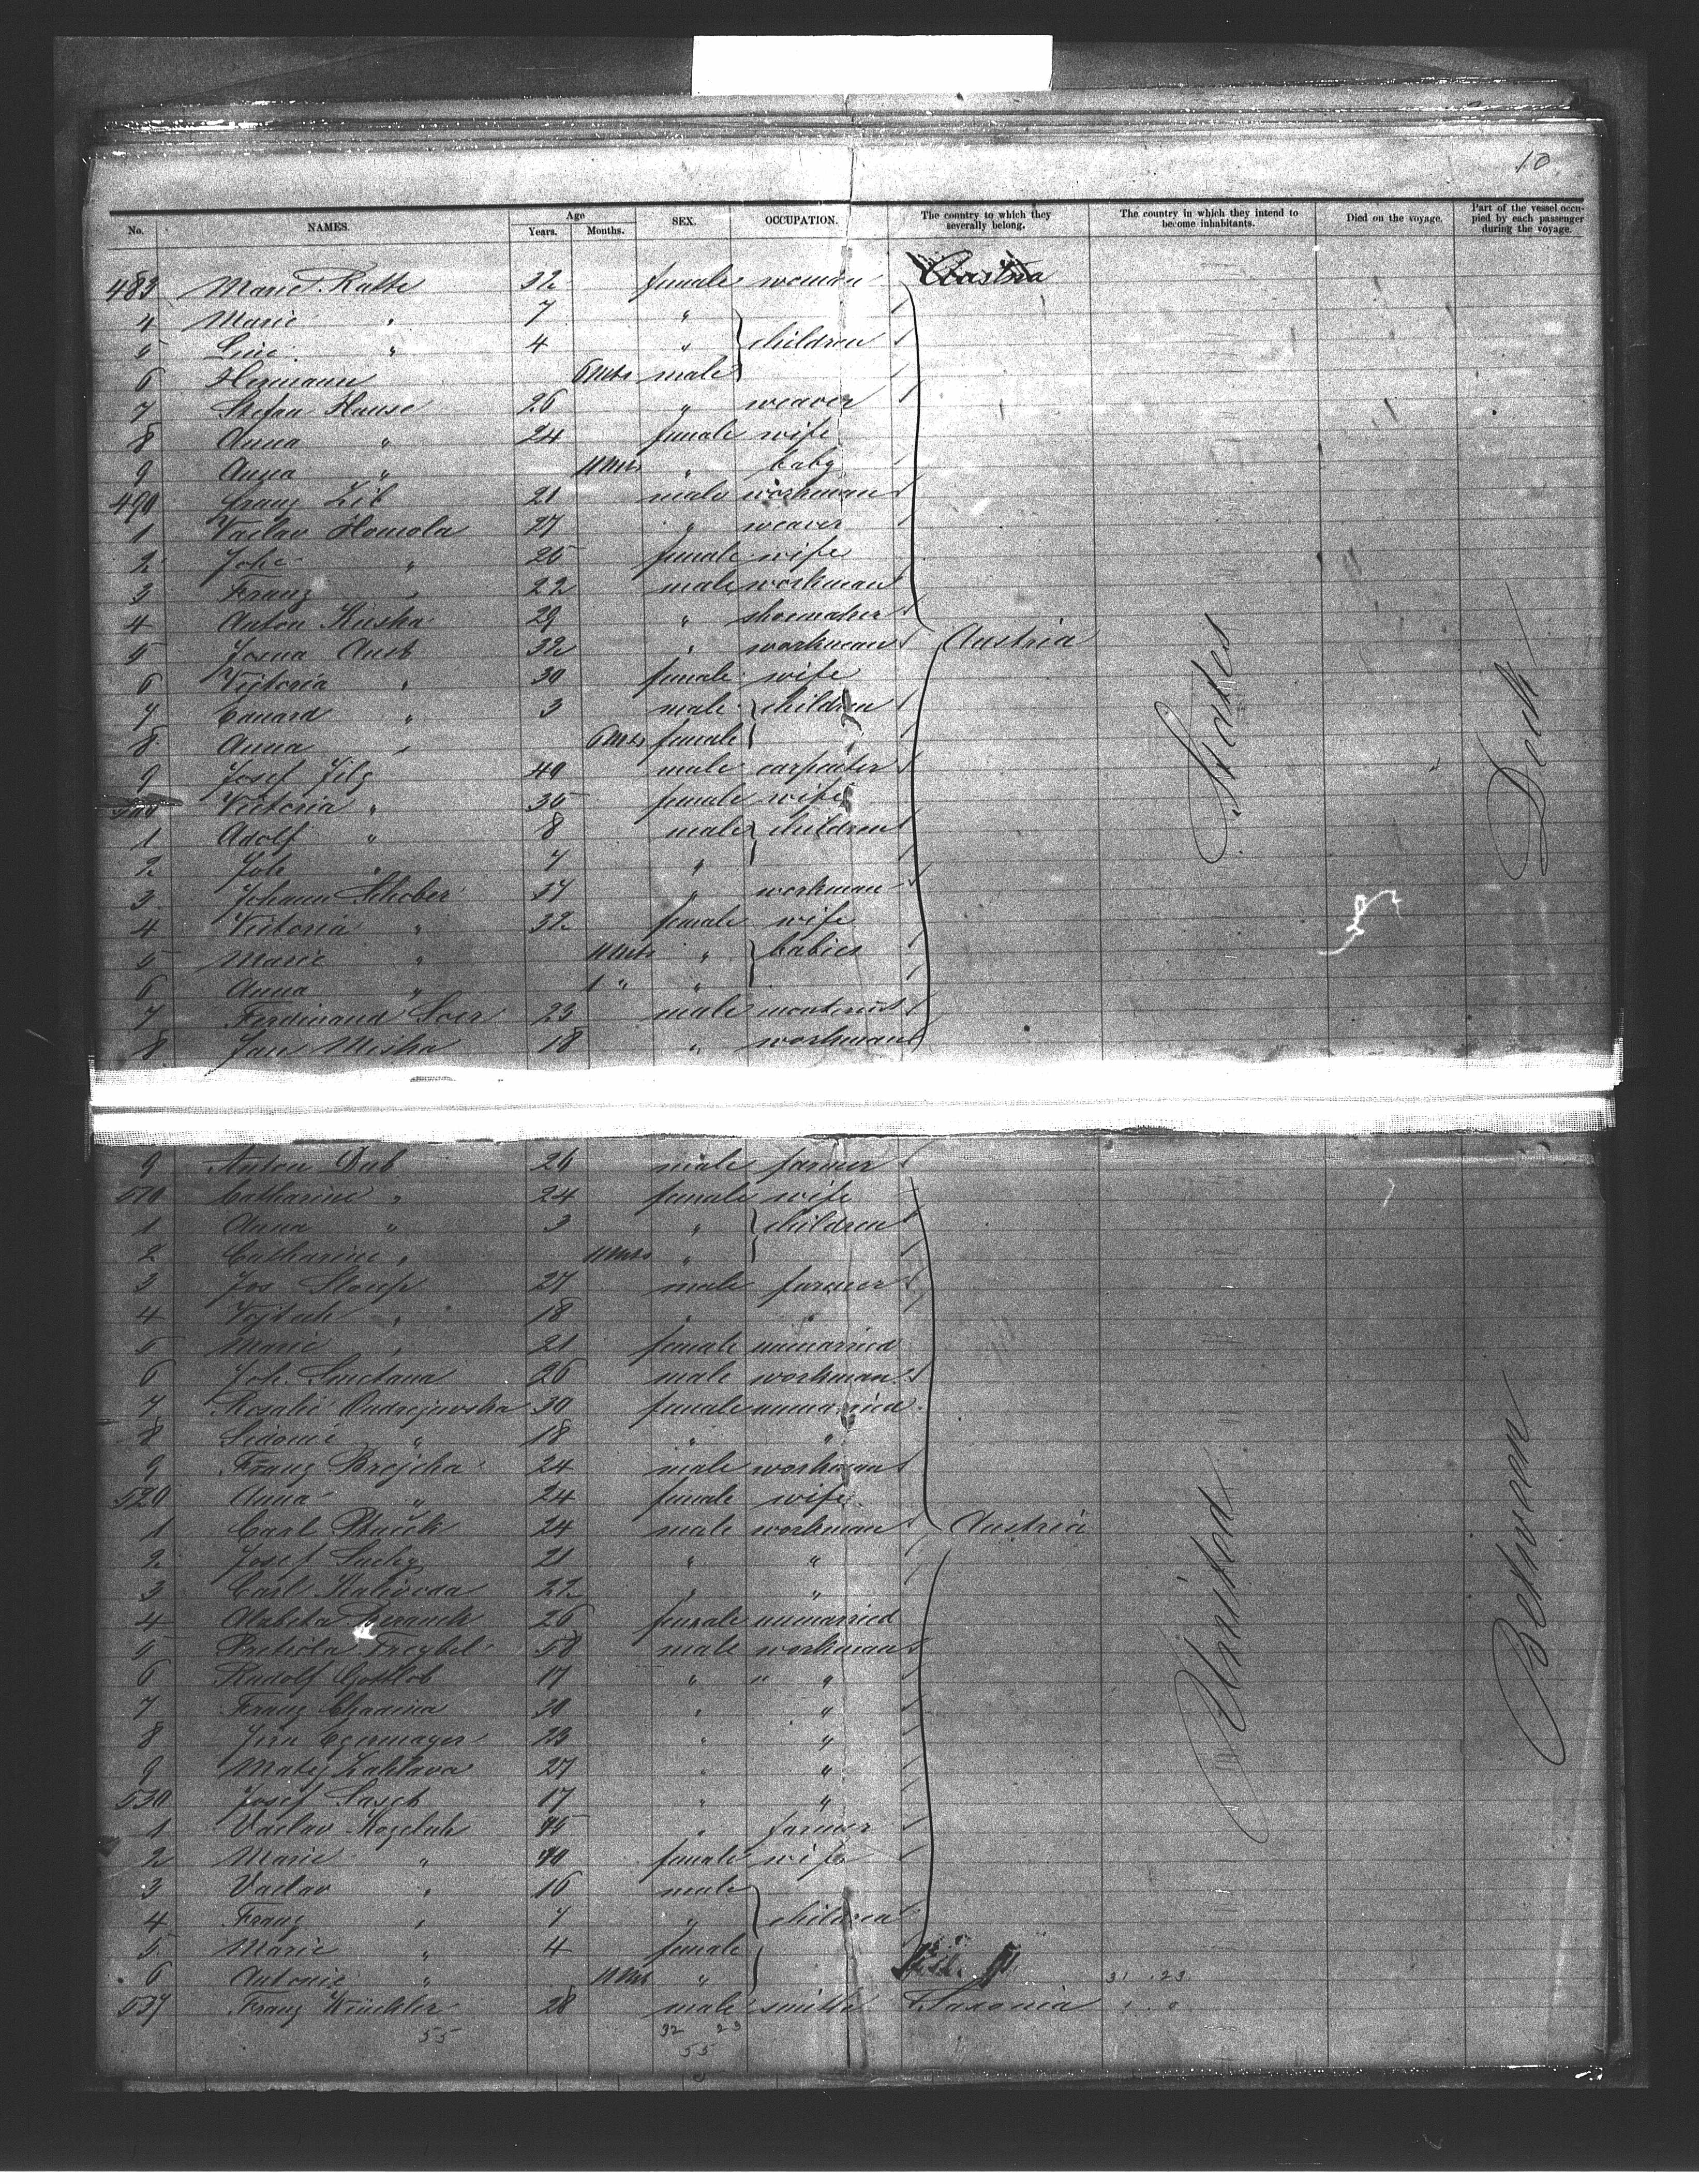 10
No. NAMES. Age Years. Months. SEX. OCCUPATION. The country to which they severally belong. The country in which they intend to become inhabitants. Died on the voyage. Part of the vessel occupied by each passenger during the voyage.
483 Marie Ratte 32 female woman Austria
4 Marie " 7 " children
5 Line " 4 "
6 Hermann 6 Mts male
7 Stefan Hause 26 " weaver
8 Anna " 24 female wife
9 Anna " 11 Mts " baby
490 Franz Zib 21 male workman
1 Vaclav Homola 27 " weaver
2 Johe " 25 female wife
3 Franz " 22 male workman
4 Anton Kuska 29 " shoemaker
5 Josua Aust 32 " workman Austria
6 Victoria " 30 female wife
7 Eduard " 3 male children
8 Anna " 6 Mts female
9 Josef Jilg 40 male carpenter
500 Victoria " 35 female wife
1 Adolf " 8 male children
2 Joh " 7 "
3 Johann Schober 37 " workman
4 Victoria " 32 female wife
5 Marie " 11 Mts " babies
6 Anna " 1 " "
7 Ferdinand 23 male
8 Jan Miska 18 " workman
States
Deck
9 Anton Dub 26 male farmer
510 Catharine " 24 female wife
1 Anna " 3 " children
2 Catharine " 11 Mts "
3 Jos Sloup 27 male farmer
4 Vojtech " 18 " "
5 Marie " 21 female unmarried
6 Joh. Smetana 26 male workman
7 Rosalie Andrejewska 30 female unmarried
8 Sidonie " 18 " "
9 Franz Brejcha 24 male workman
520 Anna " 24 female wife
1 Carl Ptacek 24 male workman Austria
2 Josef Suchy 21 " "
3 Carl Kalivoda 22 " "
4 Alzbeta 26 female unmarried
5 58 male workman
6 Rudolf Gottlob 17 " " "
7 Franz 30 " "
8 Jira Egermayer 23 " "
9 Matej Zahlava 27 " "
530 Josef 17 " "
1 Vaclav Kozeluh 45 " farmer
2 Marie " 40 female wife
3 Vaclav " 16 male
4 Franz " 7 " children
5 Marie " 4 female
6 Antonie " 11 Mts " 31 . 23
537 Franz Küchler 28 male smith Saxonia 1 . 0
55 32 23
55
United
Between